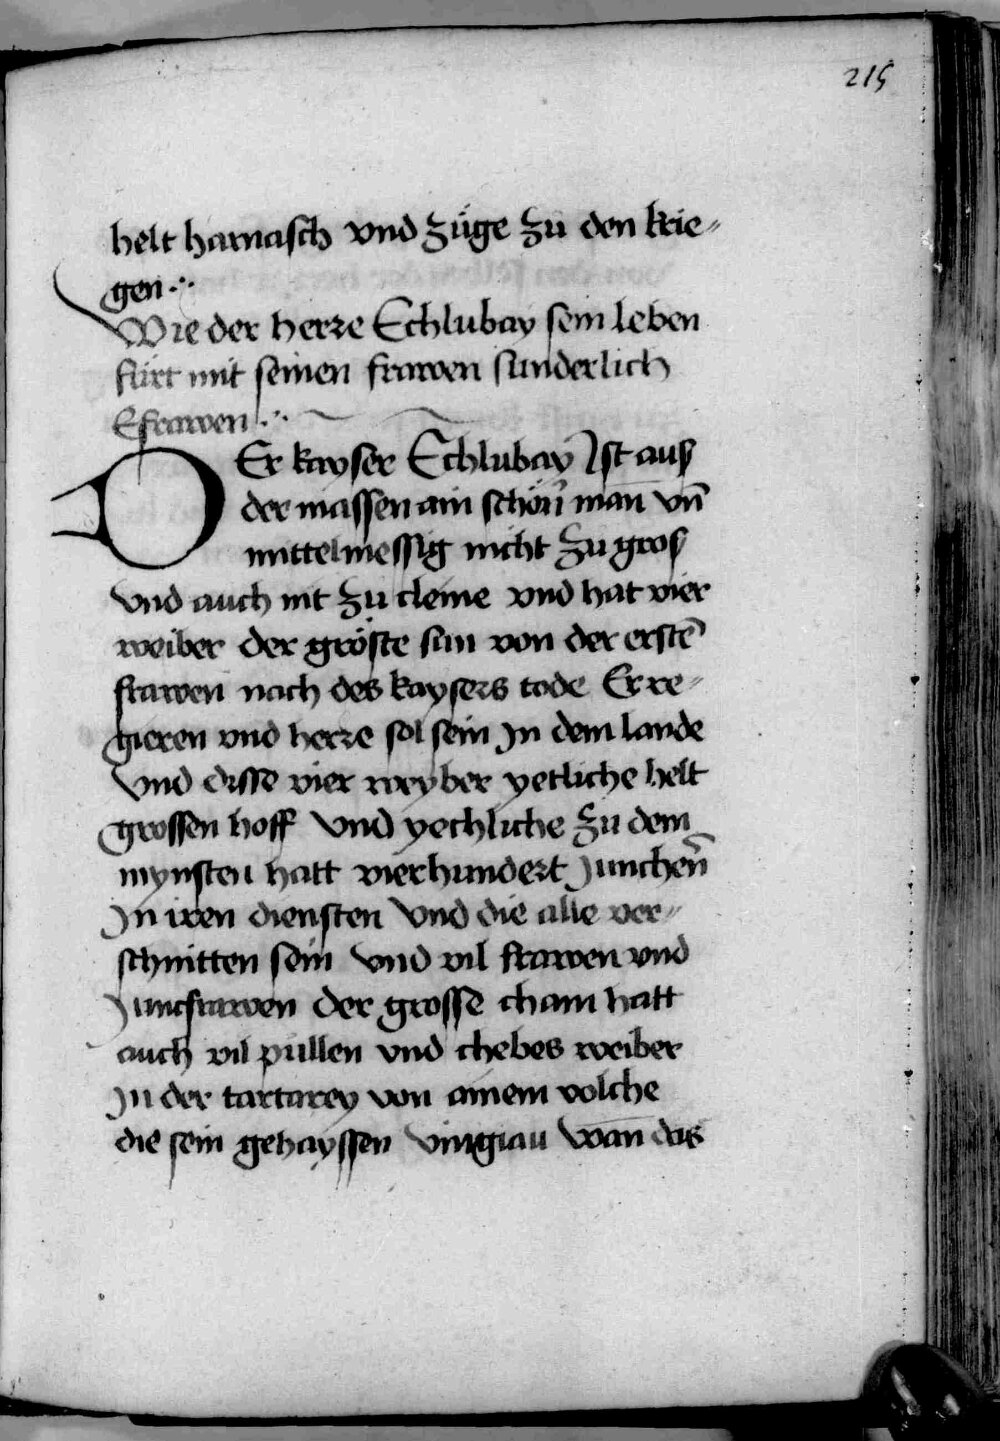 215
helt harnasch vnd züge zu den krie⸗
gen ·:·
Wie der herre Echlubay sein leben
fürt mit seinen frawen sunderlich
Efrawen ·:·
DEr kayser Echlubay Ist aus
der massen ain schön̄ man vn̄
mittelmessig nicht zu gros
vnd auch nit zu cleine vnd hat vier
weiber der gröste sun von der erstē
frawen nach des kaysers tode Er re⸗
gieren vnd herre sol sein In dem lande
vnd disse vier weyber yetliche helt
grossen hoff vnd yechliche zu dem
mynsten hatt vierhundert Junchen̄
In iren diensten vnd die alle ver⸗
schnitten sein vnd vil frawen vnd
Juncfrawen der grosse cham hatt
auch vil pullen vnd chebes weiber
In der tartarey von ainem volche
die sein gehayssen vngiau wan̄ das